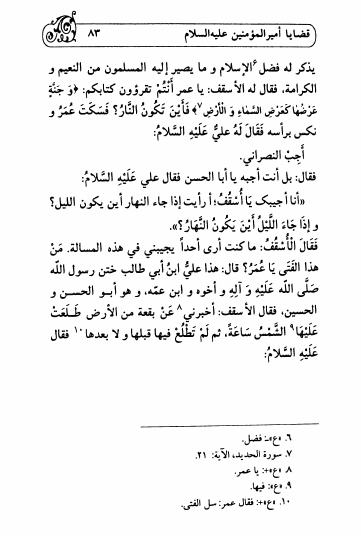 قضايا أميرالمؤمنين عليه‌السلام
٨٣
يذكر له فضل ٦ الإسلام و ما يصير إليه المسلمون من النعيم و
الكرامة، فقال له الأسقف: يا عمر أَنْتُمْ تقرؤون كتابكم: ﴿وَ جَنَّةٍ
عَرْضُهَا كَعَرْضِ السَّمَاءِ وَ الْأَرْضِ﴾ ٧ فَأَيْنَ تَكُونُ النَّارُ؟ فَسَكَتَ عُمَرُ و
نكس برأسه فَقَالَ لَهُ عليٌّ عَلَيْهِ السَّلَامُ:
أَجِبْ النصراني.
فقال: بل أنت أجبه يا أبا الحسن فقال علي عَلَيْهِ السَّلَامُ:
«أنا أجيبك يَا أُسْقُفُ؛ أ رأيت إذا جاء النهار أين يكون الليل؟
و إذَا جَاءَ اللَّيْلُ أَيْنَ يَكُونُ النَّهَارُ؟».
فَقَالَ الْأُسْقُفُ: ما كنت أرى أحداً يجيبني في هذه المسالة. مَنْ
هذا الفَتَى يَا عُمَرُ؟ قال: هذا عليُّ ابنُ أبي طالب ختن رسول الله
صَلَّى اللَّه عَلَيْهِ وَ آلِهِ و أخوه و ابن عمّه، و هو أبو الحسن و
الحسين، فقال الأسقف: أخبرني ٨ عَنْ بقعة من الأرض طَلَعَتْ
عَلَيْهَا ٩ الشَّمْسُ سَاعَةً، ثم لَمْ تَطْلُعْ فيها قبلها و لا بعدها ١٠ فقال
عَلَيْهِ السَّلَامُ:
٦. «ع»-: فضل.
٧. سورة الحديد، الآية: ٢١.
٨. «ع»+: يا عمر.
٩. «ع»: فيها.
١٠. «ع»+: فقال عمر: سل الفتى.